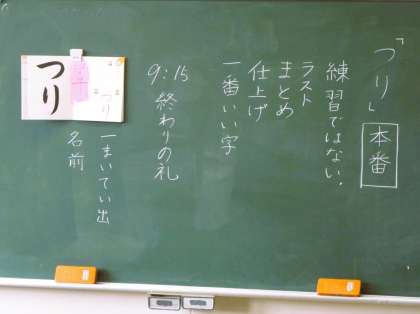 「つり」本番
練習ではない.
ラスト
まとめ
仕上げ
一番いい字
9:15 終わりの礼
一まいでい出
名前
つり